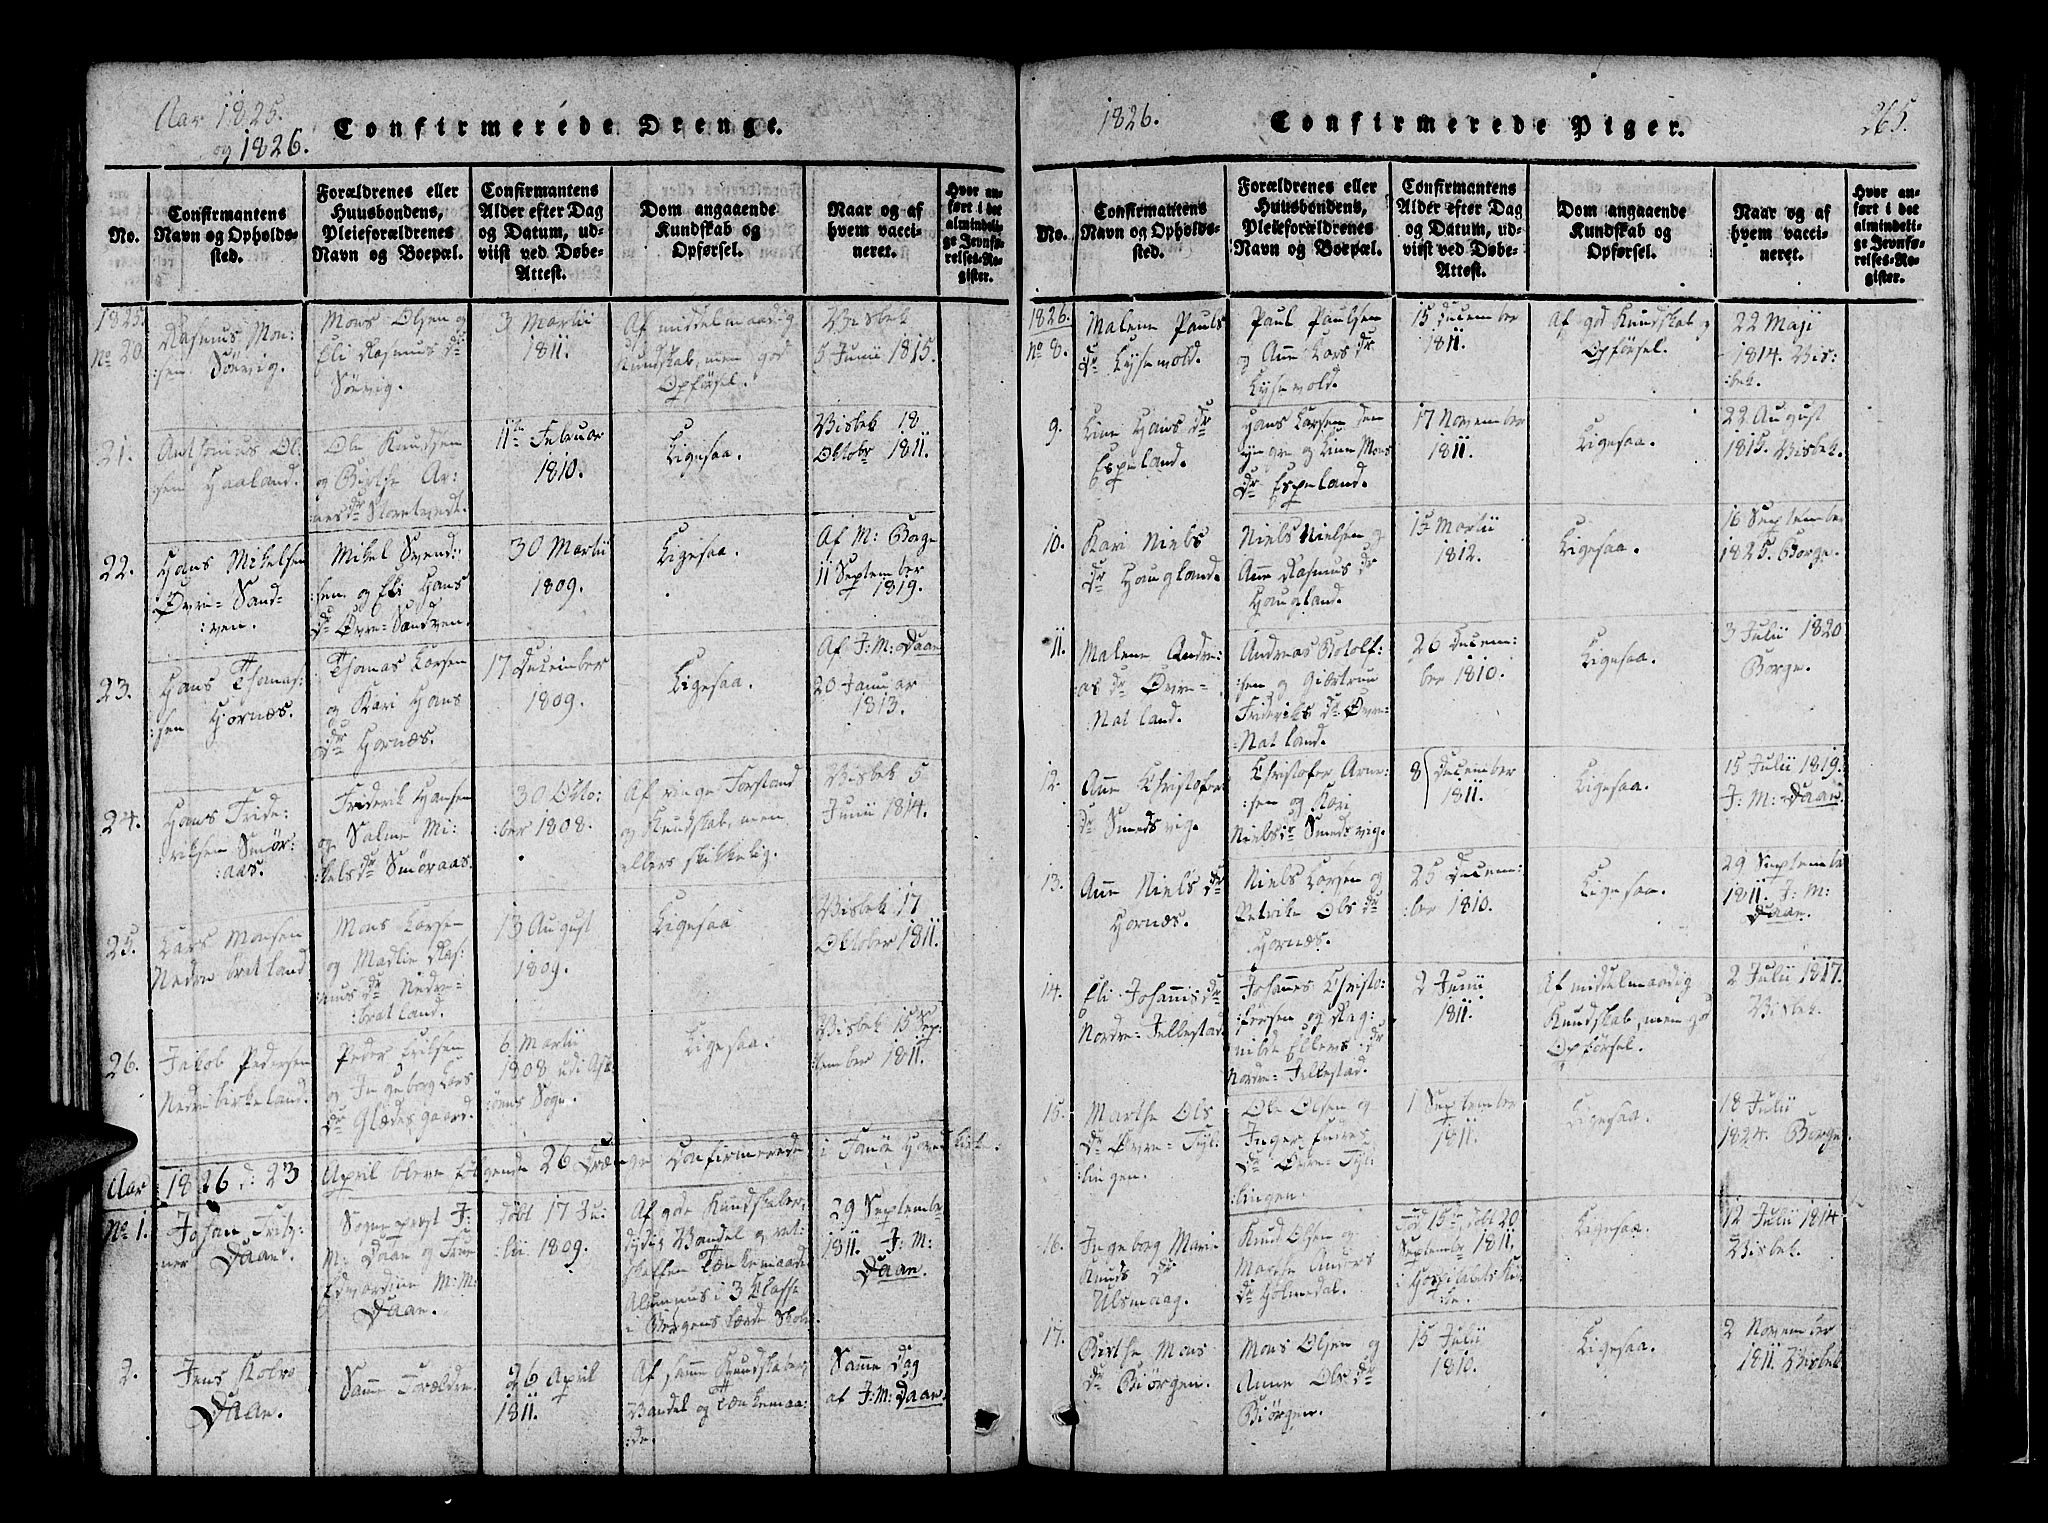 Aar 1825.
og 1826.
Confirmerede Drenge.
No.
Confirmantens
Navn og Opholds-
sted.
Forældrenes eller
Huusbondens,
Pleieforældrenes
Navn og Boepæl.
Confirmantens
Alder efter Dag
og Datum, ud-
viist ved Døbe-
Attest.
Dom angaaende
Kundskab og
Opførsel.
Naar og af
hvem vacci-
neret.
Hvor an-
ført i det
almindeli-
ge Jevnfø-
relses-Re-
gister.
1825.
No 20
Rasmus Mon:
:sen Sönvig.
Mons Olsen og
Eli Rasmus dr
Sönvig.
3 Martii
1811.
Af middelmaadig
Kundskab, men god
Opførsel.
Visbek
5 Junii 1815.
21.
:sen Haaland.
Ole Knudsen
og Birthe Ar:
:nes dr
11te Februar
1810.
Ligesaa.
Visbek 18
Oktobr 1811.
22.
Hans Mikelsen
Øvre-Sand-
:ven.
Mikel Svend:
:sen og Eli Hans
dr Øvre-Sandven.
30 Martii
1809.
Ligesaa.
Af M: Borge
11 September
1819.
23.
Hans Thomas:
:sen Hornæs.
Thomas Larsen
og Kari Hans
dr Hornæs.
17 December
1809.
Ligesaa.
Af J: M: Daan
20 Januar
1813.
24.
Hans Fride:
:riksen Smör:
:aas.
Friderik Hansen
og Salme Mi:
:kels dr Smöraas.
30 Okto:
:ber 1808.
Af ringe Forstand
og Kundskab, men
ellers skikkelig.
Visbek 5
Junii 1814.
25.
Lars Monsen
Nedre bratland
Mons Larsen
og Madlie Ras:
:mus dr Nedre-
:bratland.
13 August
1809.
Ligesaa
Visbek 17
Oktober 1811.
26.
Jakob Pedersen
Nedre birkeland.
Peder Eriksen
og Ingeborg Lars
dr Glædesgaard.
6 Martii
1808 udi Ask:
:önns Sogn.
Ligesaa.
Visbek 15 Sep:
:tember 1811.
Aar 1826 d: 23 April bleve følgende 26 Drænge Confirmerede i Fanöe Hoved Kirke.
No 1.
Johan Fritz:
ner Daan.
Sogneprest J:
M: Daan og Frue
Edvardine M: M:
Daan.
døbt 17 Ju:
:lii 1809.
Af gode Kundskaber,
dydig Vandel og ret:
skaffen Tænkemaade
Alumnus i 3 Classe
i Bergens lærde Skole.
29 Septembr
1811. J: M:
Daan.
2.
Jens Kobro
Daan.
Samme Forældre.
26 April
1811.
Af samme Kundskaber,
Vandel og Tænkemaa:
:de.
Samme Dag
af J: M: Daan.
1826.
Confirmerede Piger.
265.
No.
Confirmantens
Navn og Opholds-
sted.
Forældrenes eller
Huusbondens,
Pleieforældrenes
Navn og Boepæl.
Confirmantens
Alder efter Dag
og Datum, ud-
viist ved Døbe-
Attest.
Dom angaaende
Kundskab og
Opførsel.
Naar og af
hvem vacci-
neret.
Hvor an-
ført i det
almindeli-
ge Jevnfø-
relses-Re-
gister.
1826.
No 8.
Malene Pauls
dr Lysevold.
Paul Paulsen
og Anne Lars dr
Lysevold.
15 December
1811.
Af god Kundskab og
Opførsel.
22 Maji
1814. Vis:
:bek.
9.
Line Hans dr
Espeland.
Hans Larsen den
yngre og Line Mons
dr Espeland.
17 November
1811.
Ligesaa.
22 August
1815. Visbek.
10.
Kari Niels
dr Haugland.
Niels Nielsen og
Anne Rasmus dr
Haugland.
15 Martii
1812.
Ligesaa.
16 September
1825. Borge.
11.
Malene Andre:
:as dr Øvre-
Natland.
Andreas Botolf:
:sen og Giærtrun
Frideriks dr Øvre-
:Natland.
26 Decem:
:ber 1810.
Ligesaa.
3 Julii 1820
Borge.
12.
Anne Christofer:
dr Smedsvig.
Christofer Arne:
:sen og Kari
Niels dr Smedsvig.
8 December
1811.
Ligesaa.
15 Julii 1819.
J: M: Daan.
13.
Anne Niels dr
Hornæs.
Niels Larsen og
Petrike Ols dr
Hornæs.
25 Decem:
:ber 1810.
Ligesaa.
29 Septembr
1811. J: M:
Daan.
14.
Eli Johannis dr
Nordre-Jellestad
Johannes Christo:
:fersen og Rag:
:nilde Ellers dr
Nordre-Jellestad.
2 Junii
1811.
Af middelmaadig
Kundskab, men god
Opførsel.
2 Julii 1817.
Visbek.
15.
Marthe Ols
dr Øvre-Tyl:
:lingen.
Ole Olsen og
Inger
dr Øvre-Tyl:
:lingen.
1 September
1811.
Ligesaa.
18 Julii
1824. Borge.
16.
Ingeborg Marie
Knuds dr
Ulsmaag.
Knud Olsen og
Marthe Anders
dr Holmedal.
Född 15de, döbt 20
Septembr 1811.
i Hospitalets Kir:
:ke.
Ligesaa.
12 Julii 1814
Visbek.
17.
Birthe Mons
dr Biörgen.
Mons Olsen og
Anne Ols dr
Biörgen.
15 Julii
1810.
Ligesaa.
2 November
1811. Visbek